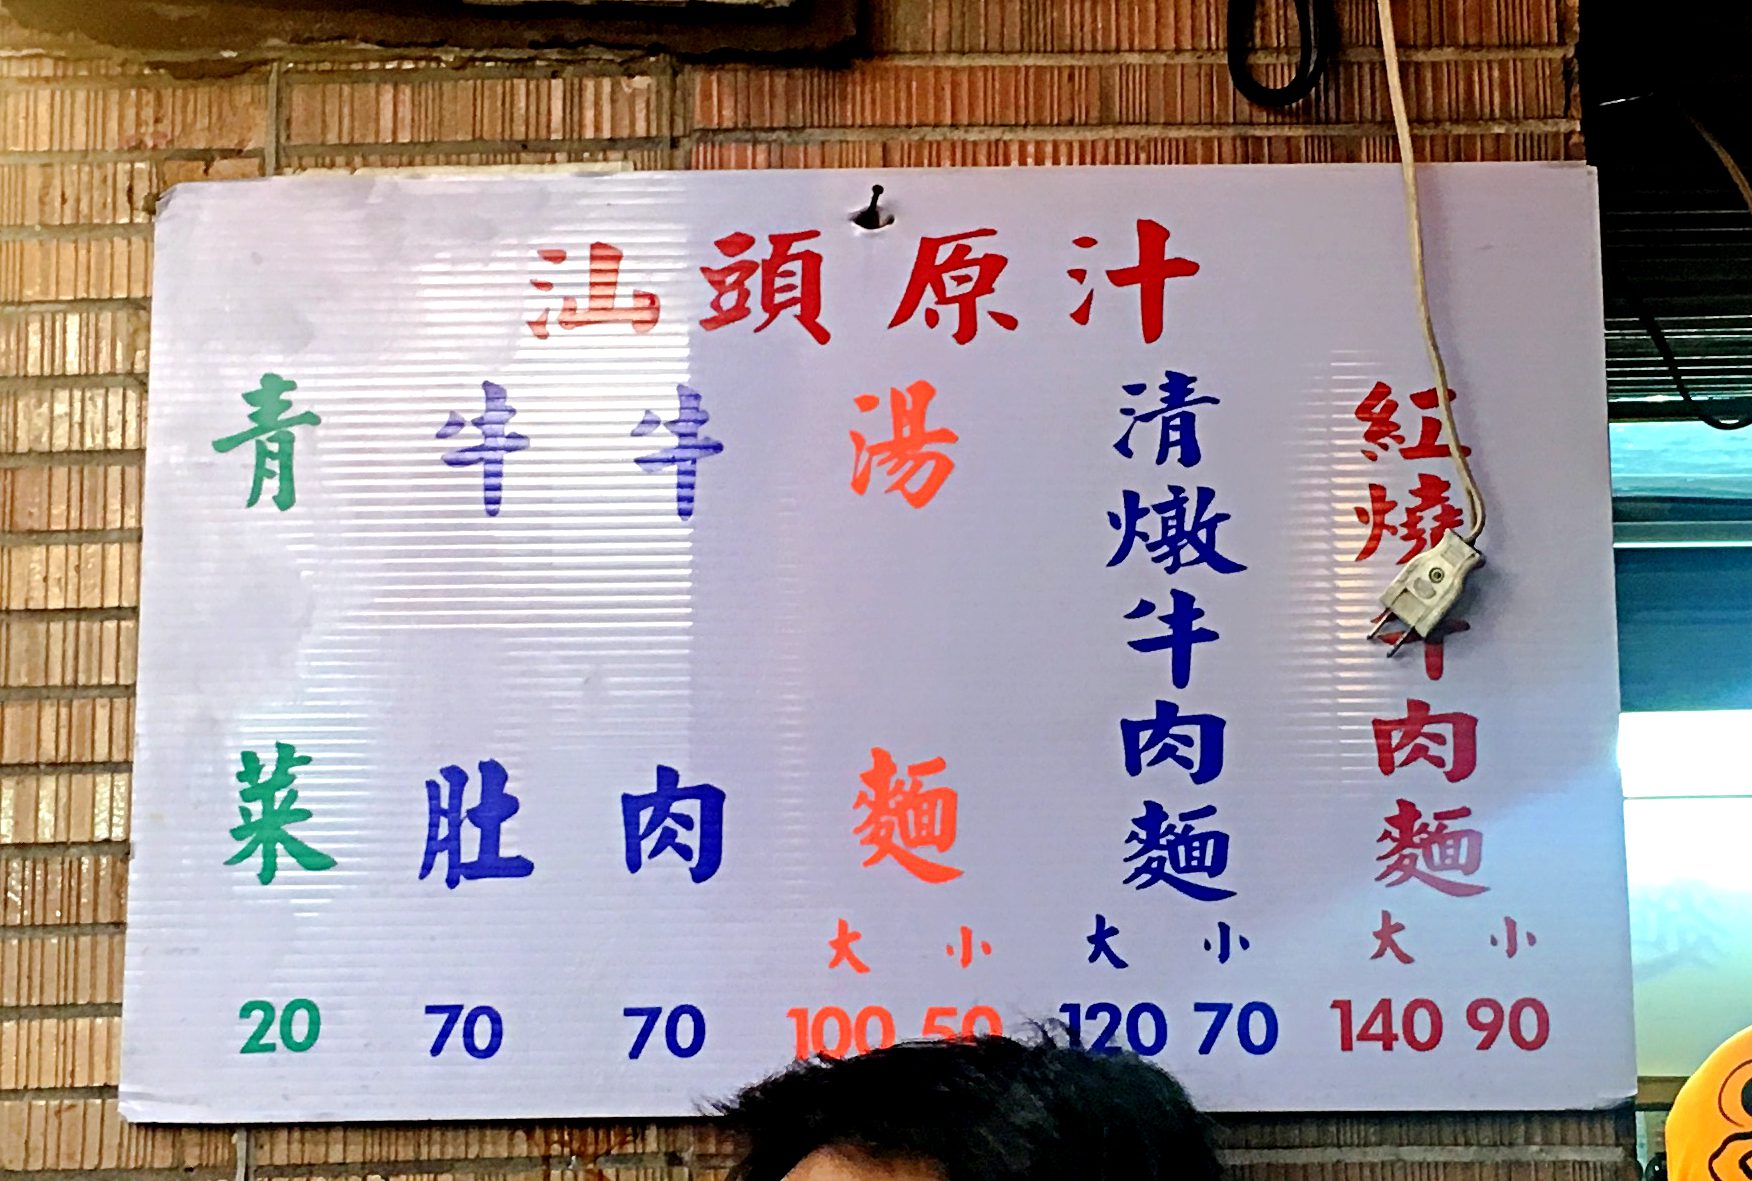 汕頭原汁
紅燒牛肉麵 大 140 小 90
清燉牛肉麵 大 120 小 70
湯麵 大 100 小 50
牛肉 70
牛肚 70
青菜 20